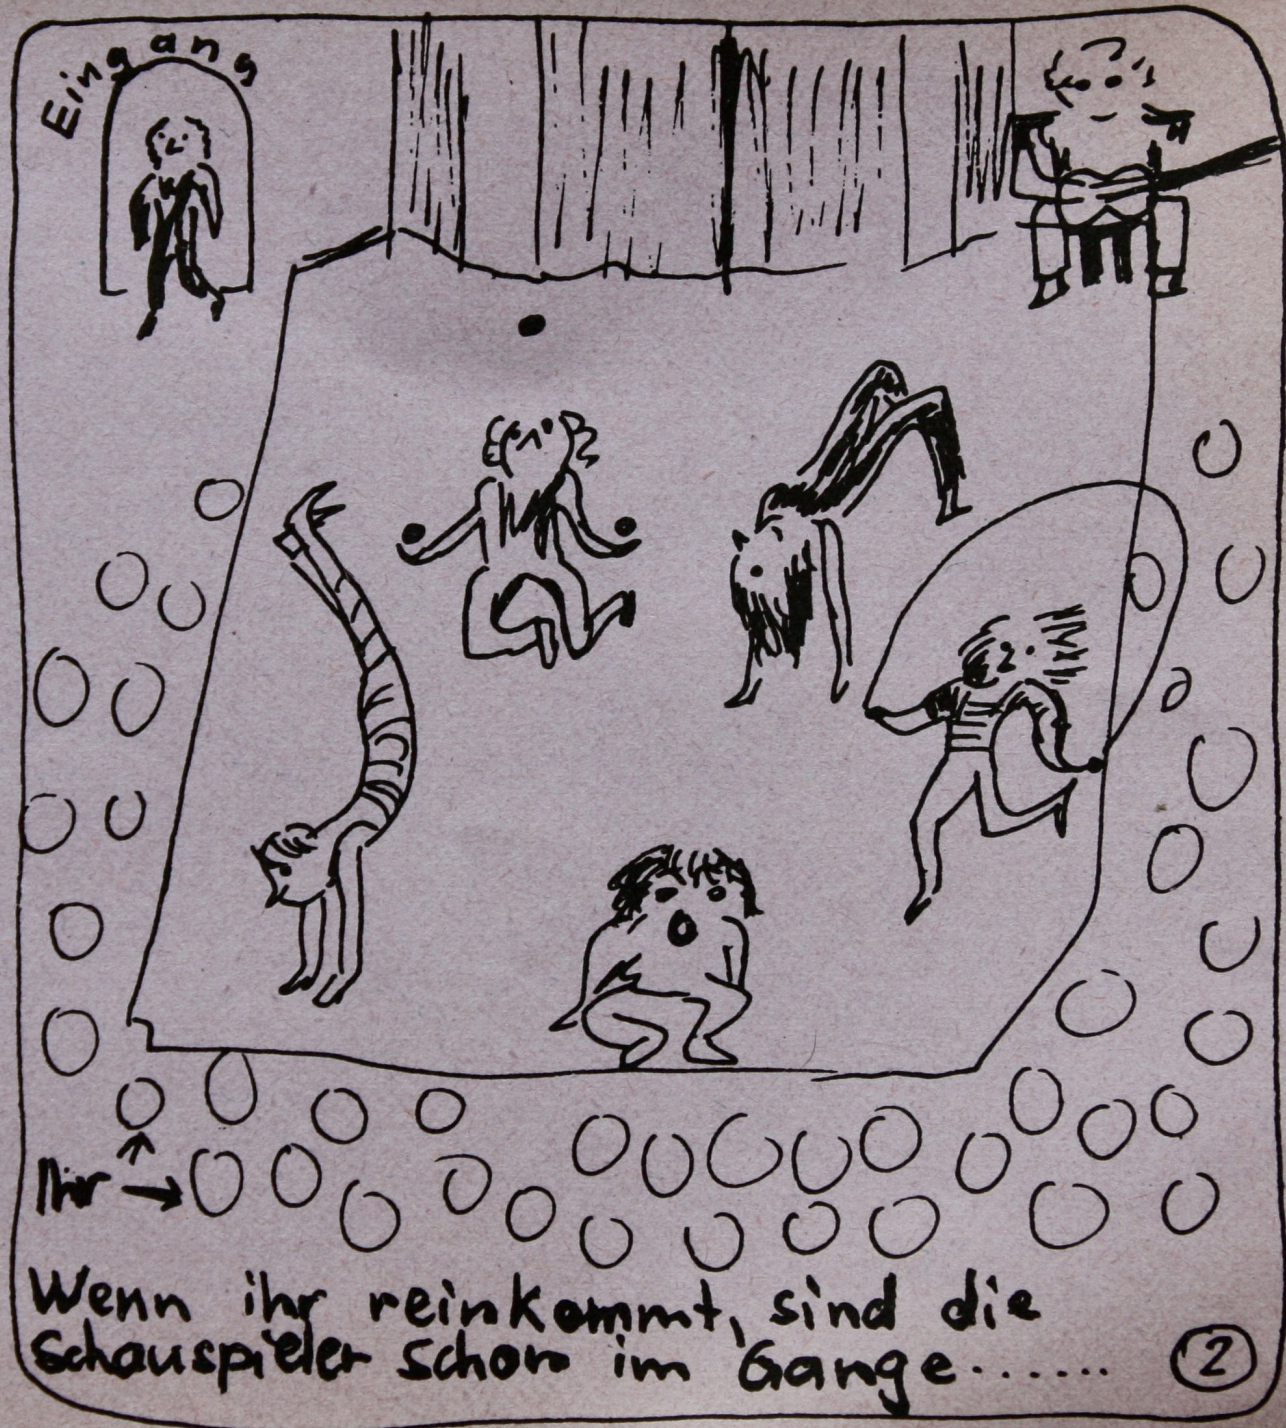 Eingang
Ihr
Wenn ihr reinkommt, sind die
Schauspieler schon im Gange.......
2